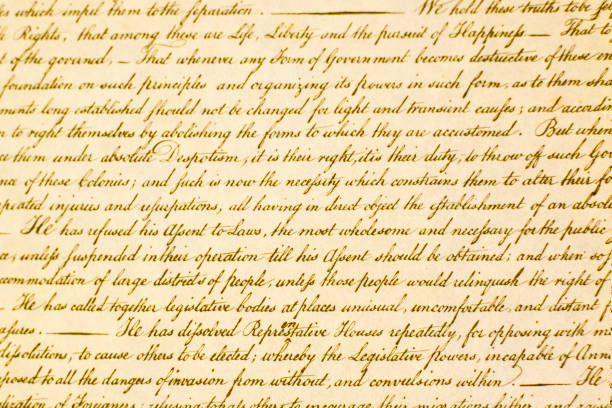 which impel them to the separation. ——— We hold these truths to be
Rights, that among these are Life, Liberty and the pursuit of Happiness — That to
of the governed, — That whenever any Form of Government becomes destructive of these
foundation on such principles and organizing its powers in such form, as to them
long established should not be changed for light and transient causes; and
to right themselves by abolishing the forms to which they are accustomed. But when
them under absolute Despotism, it is their right, it is their duty, to throw off such
of these Colonies; and such is now the necessity which constrains them to alter their
injuries and usurpations, all having in direct object the establishment of an
— He has refused his Assent to Laws, the most wholesome and necessary for the public
unless suspended in their operation till his Assent should be obtained; and when so
of large districts of people, unless those people would relinquish the right of
— He has called together legislative bodies at places unusual, uncomfortable, and distant
——— He has dissolved Representative Houses repeatedly, for opposing with
to cause others to be elected; whereby the Legislative powers, incapable of
to all the dangers of invasion from without, and convulsions within. — He
of Foreigners; refusing to pass others to encourage their migrations hither, and